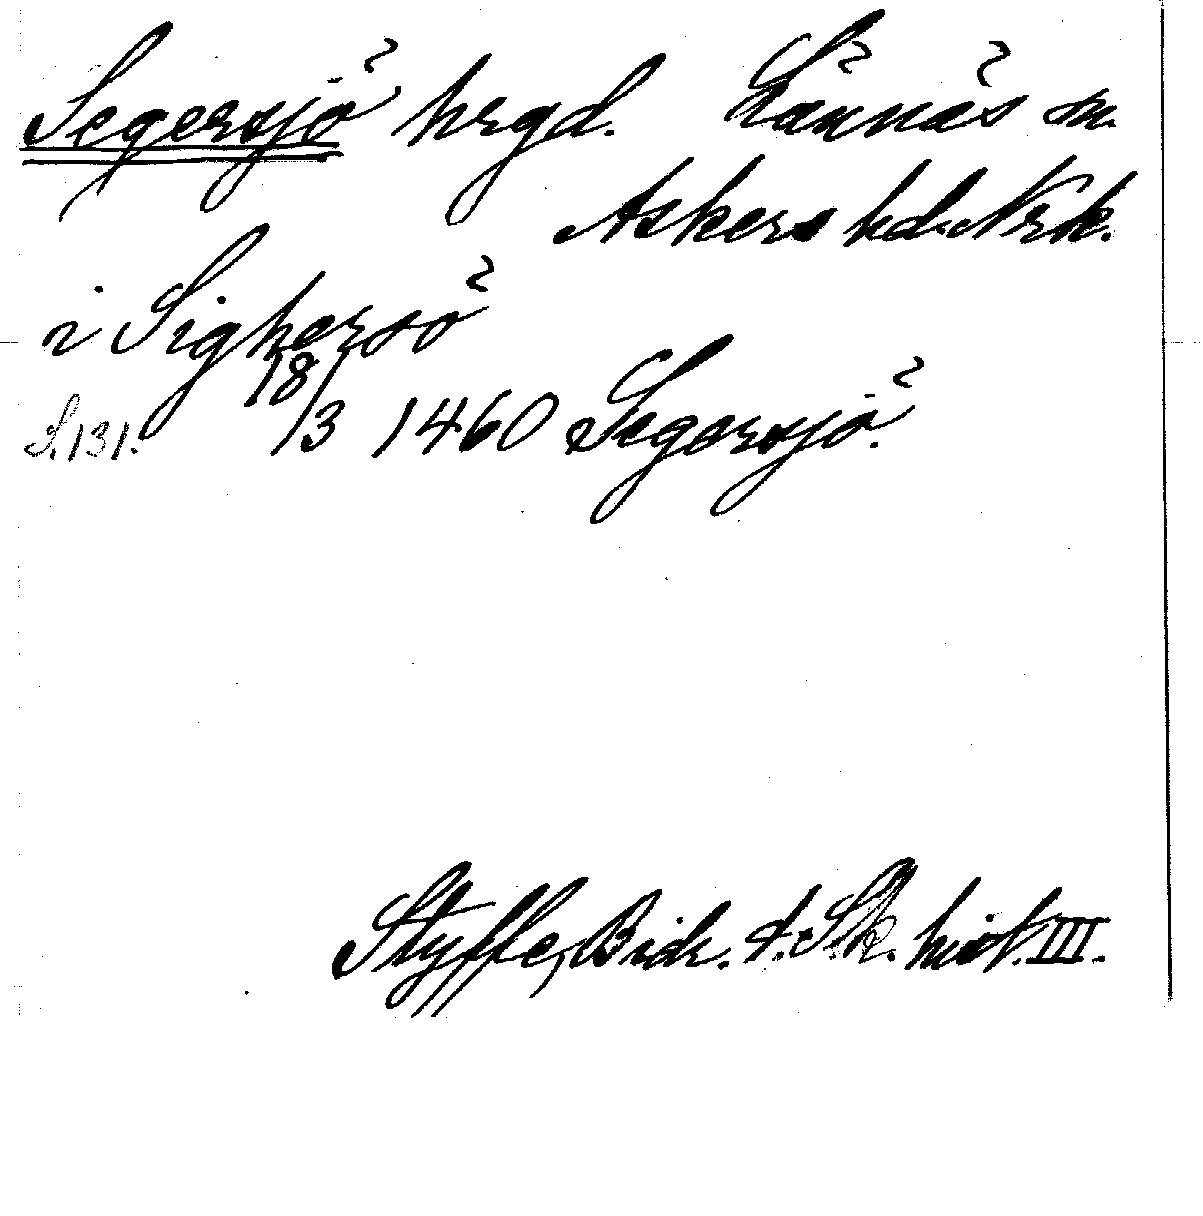 Segersjö hrgd. Lännäs sn.
Askers hd. Nrk.
i Sighersö
S. 131. 18/3 1460 Segersjö.
Styffe, Bidr. t. Sk. hist. III.